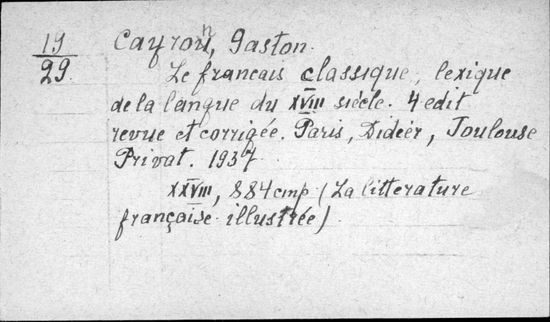 19
29.
Cayronn, Gaston.
Le francais classique, lexique
de la langue du XVIII siècle. 4 edit
revue et corrigée. Paris, Didéér, Toulouse
Privat. 1937
XXVIII, 884 стр (La litterature
française illustrée)